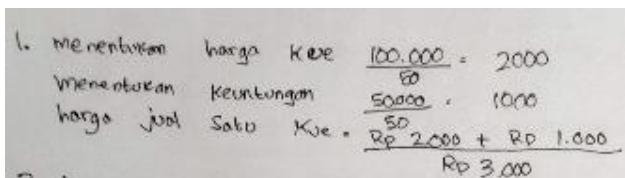 1. menentukan harga kue 100.000/50 = 2000
menentukan keuntungan 50000/50 = 1000
harga jual satu kue = Rp 2.000 + Rp 1.000
Rp 3.000